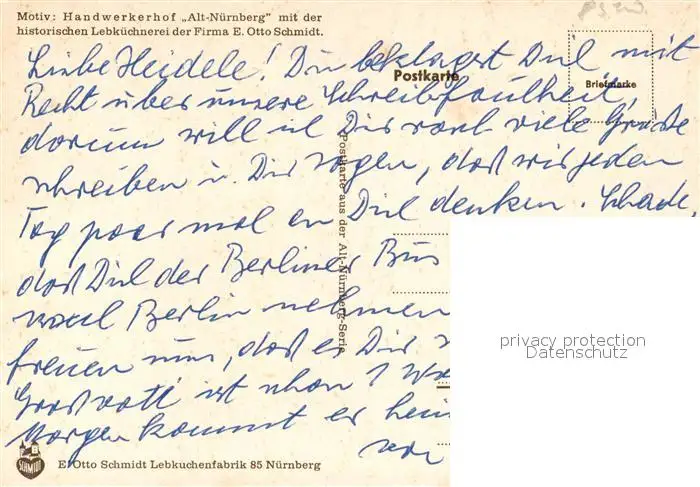 Motiv: Handwerkerhof „Alt-Nürnberg" mit der
historischen Lebküchnerei der Firma E. Otto Schmidt.
Postkarte
Briefmarke
Liebe Heidele! Du beklagst Dich mit
Recht über unsere Schreibfaulheit,
darum will ich Dir noch viele Grüße
schreiben u. Dir sagen, daß wir jeden
Tag paar mal an Dich denken. Schade,
daß Dich der Berliner Bus
nach Berlin nehmen
freuen uns, daß es Dir
ist schon 1
Morgen kommt er
von
Postkarte aus der Alt-Nürnberg-Serie
privacy protection
Datenschutz
SCHMIDT
E. Otto Schmidt Lebkuchenfabrik 85 Nürnberg